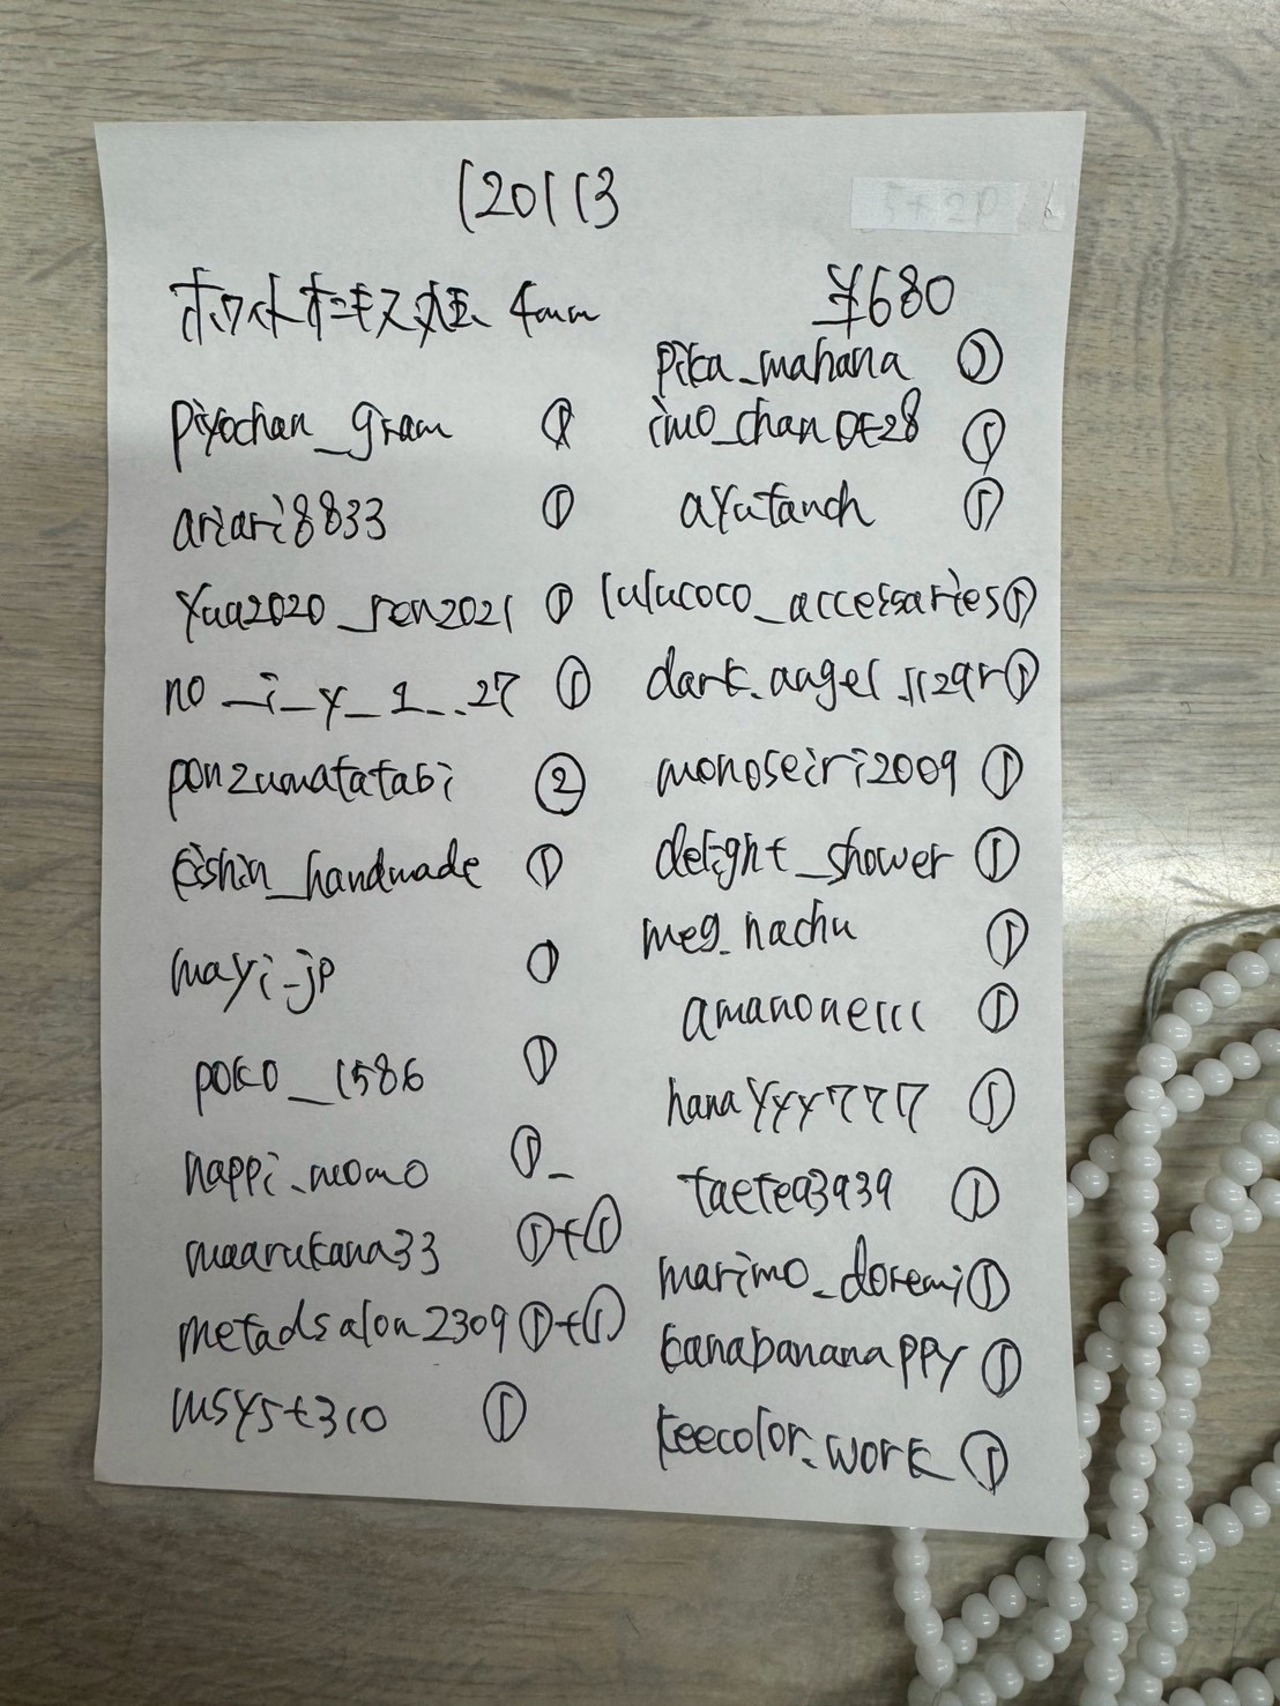 120113
ホワイトオニキス丸玉 4mm
¥680
piyochan_gram ①
ariari8833 ①
yua2020_ren2021 ①
no_i_y_1_..27 ①
ponzumatatabi ②
kishin_handmade ①
mayi_jp ①
poko__1586 ①
nappi_momo ①_
maarukana33 ①+①
metadsalon2309 ①+①
msyst310 ①
pika_mahana ①
imo_chan0428 ①
ayutanch ①
lulucoco_accessaries ①
dark.angel ①
monoseiri2009 ①
delight_shower ①
meg_nachu ①
amanone111 ①
hanayyy777 ①
taetea3939 ①
marimo_doremi ①
kanabananappy ①
keecolor.work ①